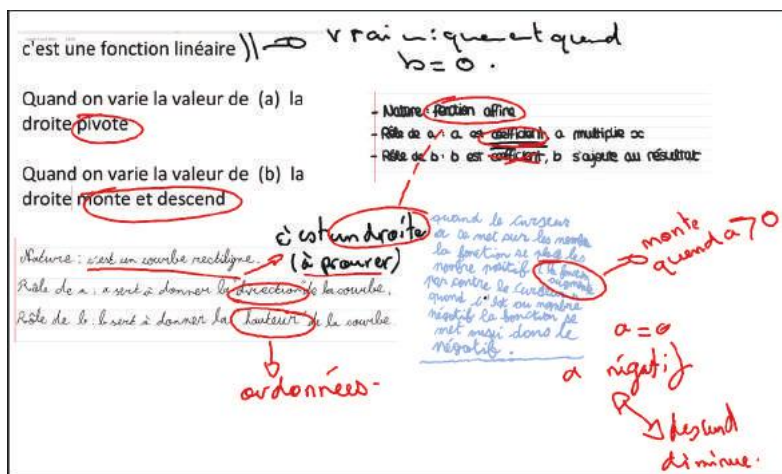 c'est une fonction linéaire )) → vrai uniquement quand
b = 0.
Quand on varie la valeur de (a) la
droite pivote
Quand on varie la valeur de (b) la
droite monte et descend
- Nature: fonction affine
- Rôle de a: a est coefficient, a multiplie x
- Rôle de b: b est coefficient, b s'ajoute au résultat
c'est un droite
(à prouver)
Nature: c'est un courbe rectiligne.
Rôle de a: a sert à donner la "direction" de la courbe.
Rôle de b: b sert à donner la "hauteur" de la courbe
ordonnées -
quand le curseur
a se met sur les nombre
la fonction se place les
nombre positif
par contre le curseur
quand il est au nombre
négatif la fonction se
met aussi dans le
négatif.
monte
quand a > 0
a = 0
a négatif
descend
diminue.